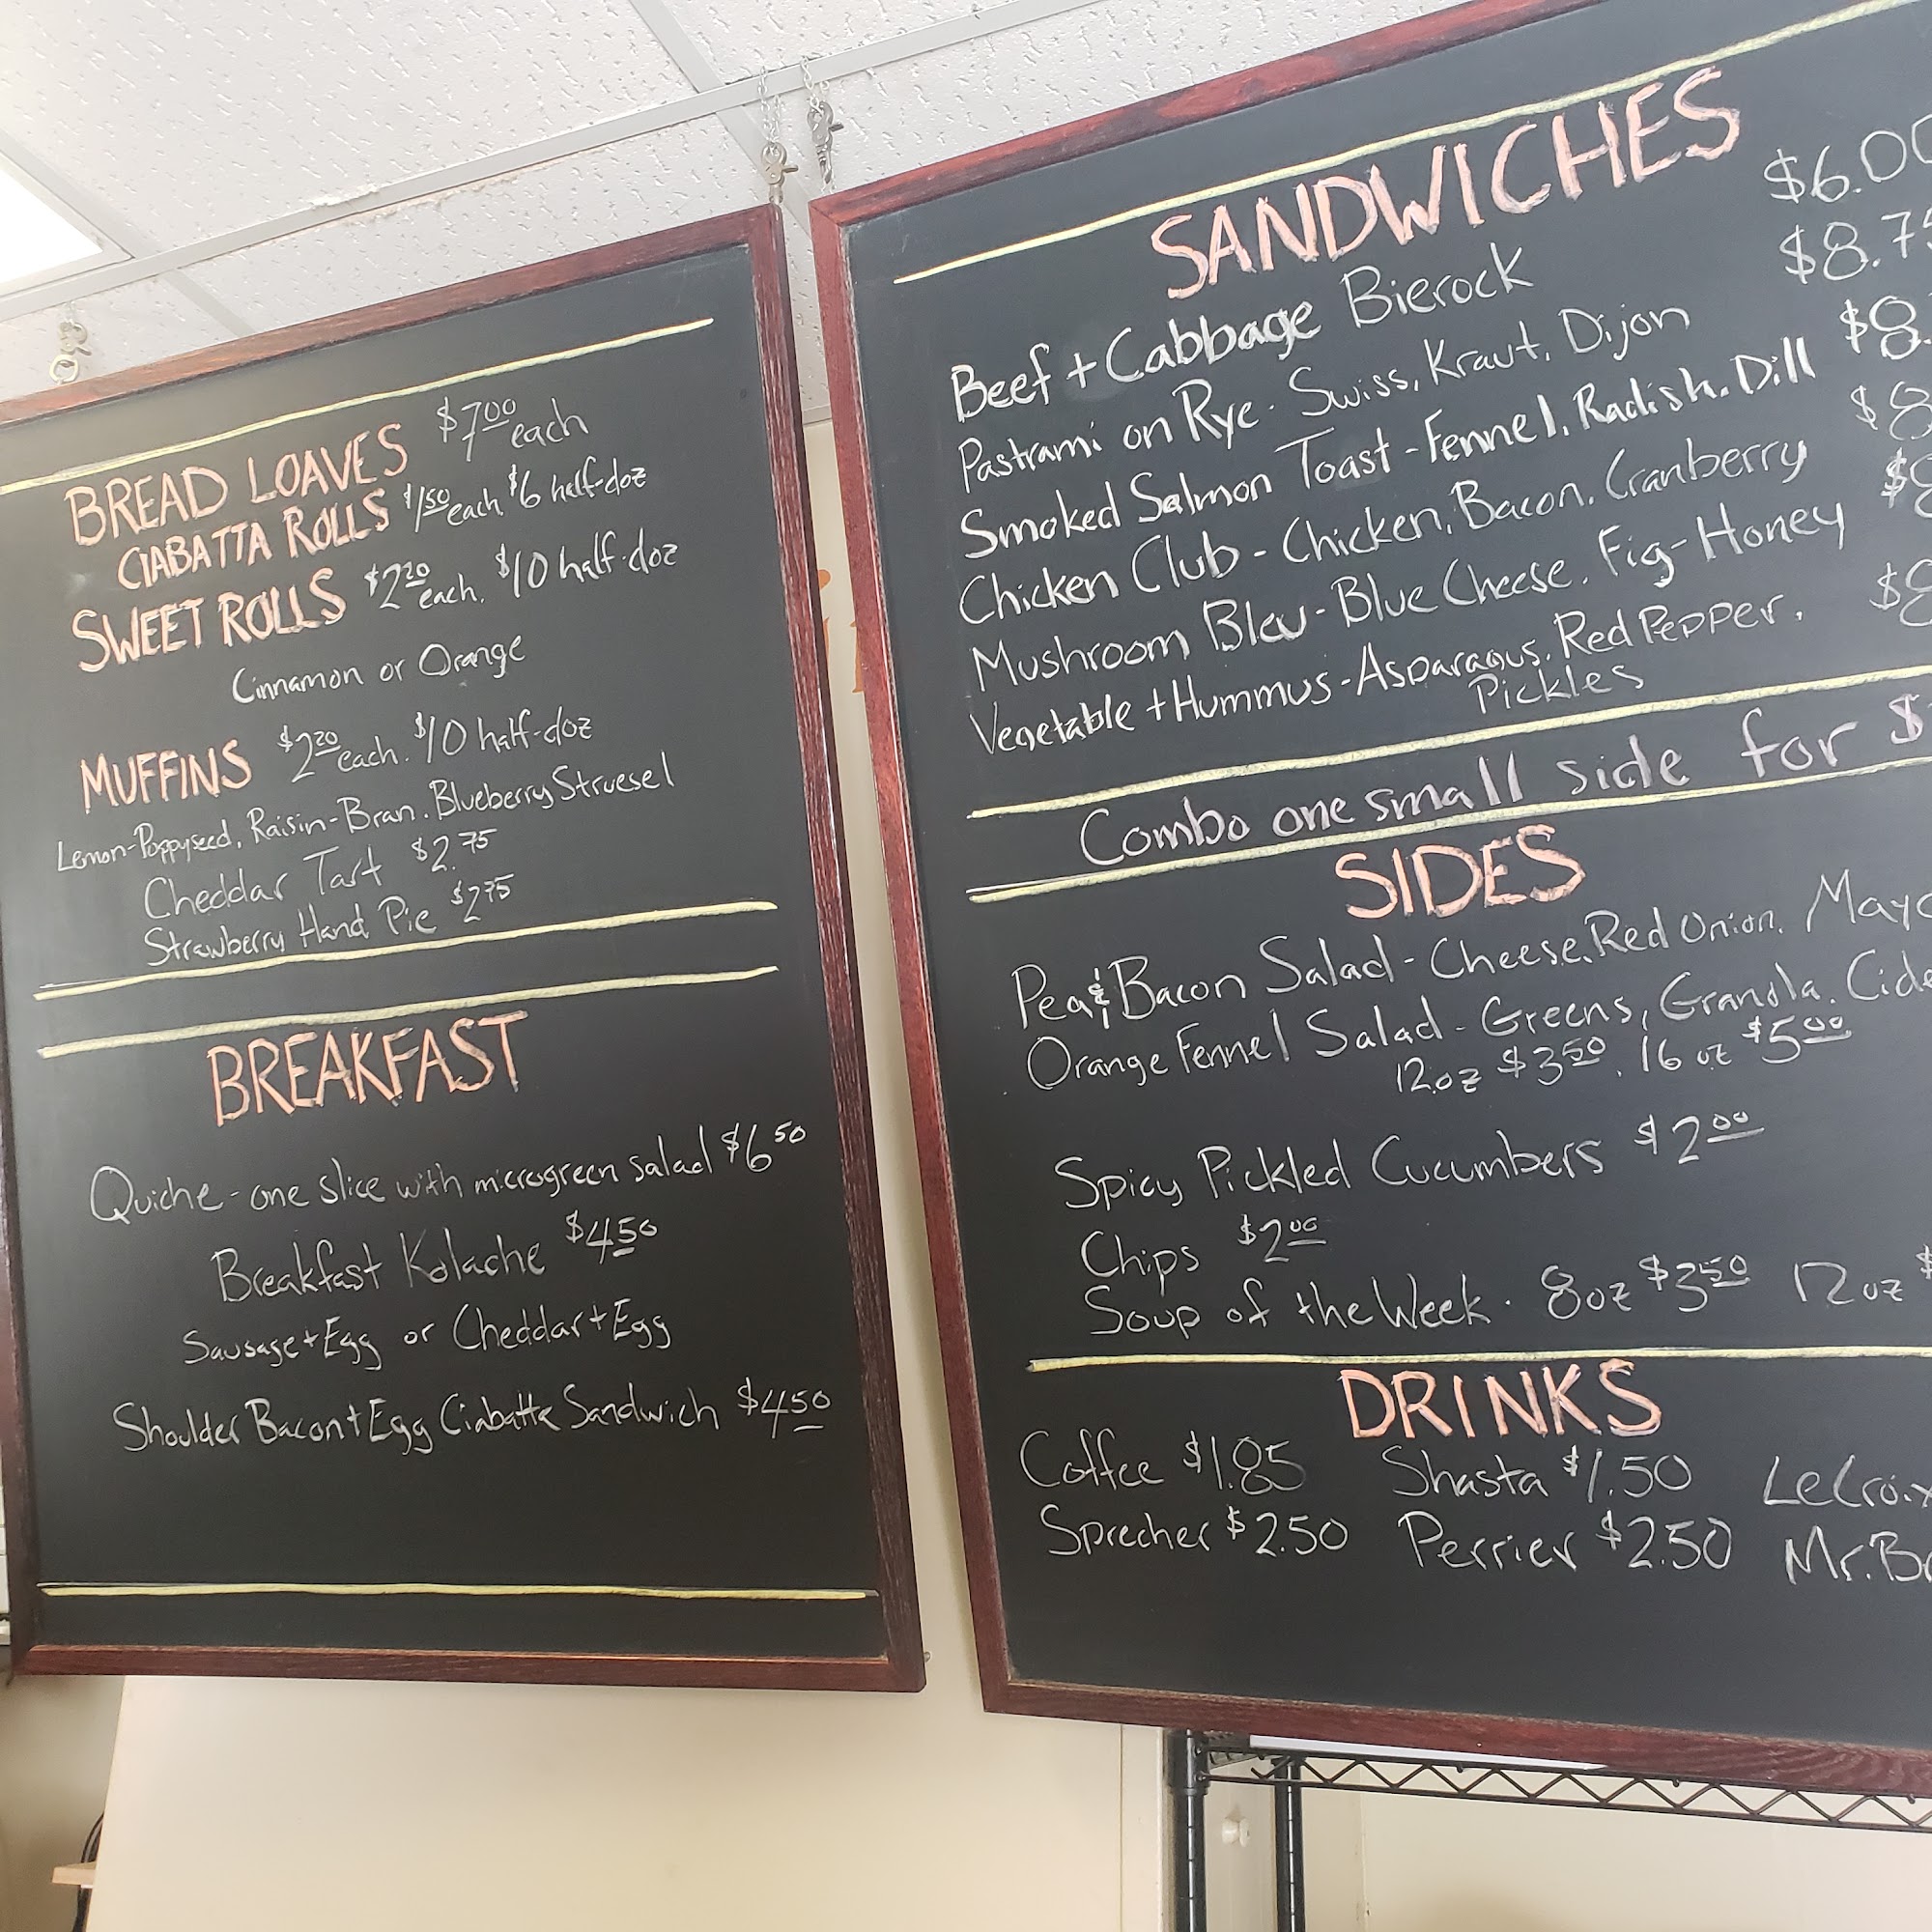 BREAD LOAVES $7.00 each
CIABATTA ROLLS $1.50 each, $6 half-doz
SWEET ROLLS $2.20 each, $10 half-doz
Cinnamon or Orange
MUFFINS $2.20 each. $10 half-doz
Lemon-Poppyseed, Raisin-Bran, Blueberry Struesel
Cheddar Tart $2.75
Strawberry Hand Pie $2.75
BREAKFAST
Quiche - one slice with microgreen salad $6.50
Breakfast Kolache $4.50
Sausage + Egg or Cheddar + Egg
Shoulder Bacon + Egg Ciabatta Sandwich $4.50
SANDWICHES
Beef + Cabbage Bierock $6.00
Pastrami on Rye - Swiss, Kraut, Dijon $8.7
Smoked Salmon Toast - Fennel, Radish, Dill $8.
Chicken Club - Chicken, Bacon, Cranberry $8
Mushroom Bleu - Blue Cheese, Fig-Honey $
Vegetable + Hummus - Asparagus, Red Pepper, $8
Pickles
Combo one small side for $
SIDES
Pea & Bacon Salad - Cheese, Red Onion, Mayo
Orange Fennel Salad - Greens, Granola, Cide
12oz $3.50, 16 oz $5.00
Spicy Pickled Cucumbers $2.00
Chips $2.00
Soup of the Week - 8oz $3.50 12oz $
DRINKS
Coffee $1.85 Shasta $1.50 LeCroix
Sprecher $2.50 Perrier $2.50 Mr. B